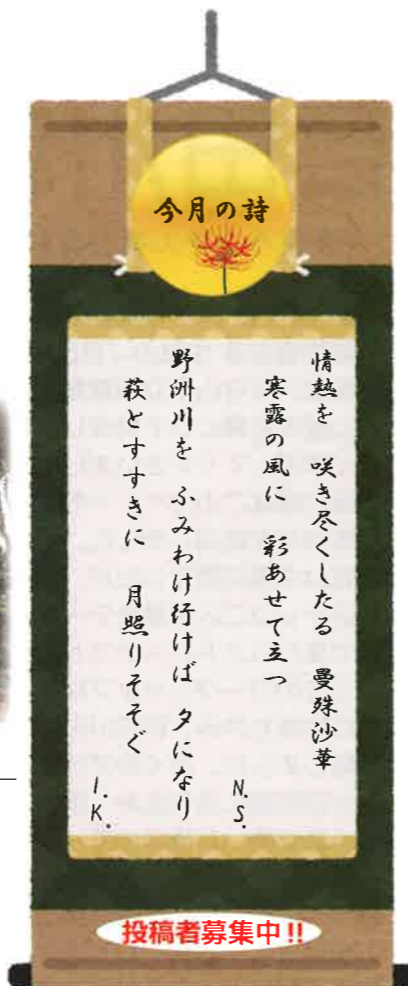 今月の詩
情熱を 咲き尽くしたる 曼殊沙華
寒露の風に 彩あせて立つ
N.S.
野洲川を ふみわけ行けば 夕になり
萩とすすきに 月照りそそぐ
I.K.
投稿者募集中!!